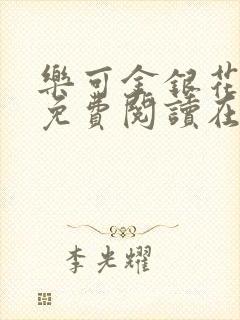 樂可金銀花
免費閱讀在
李光耀